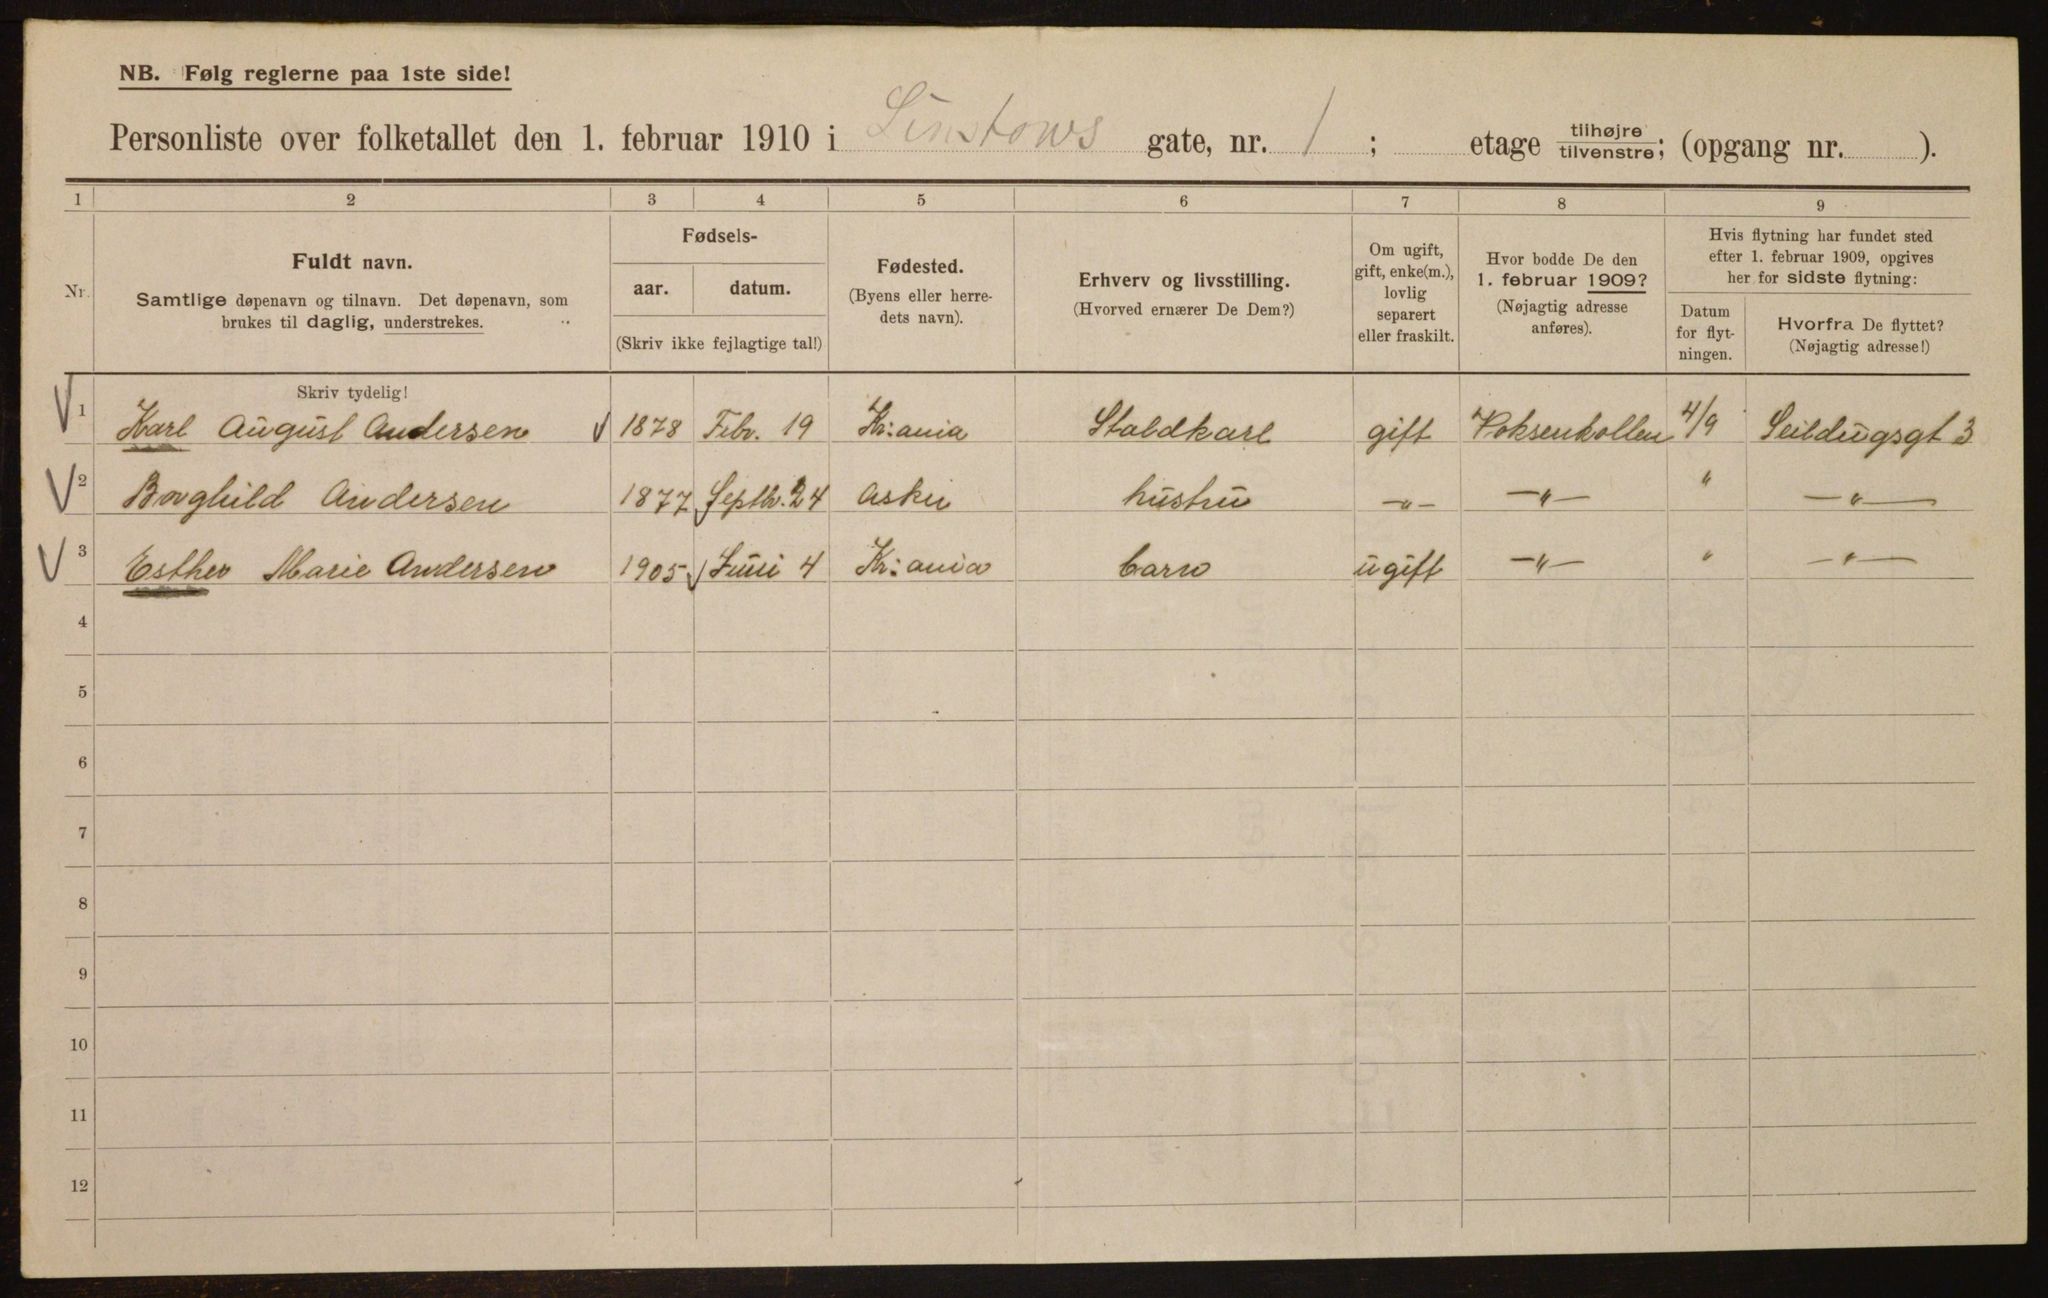 NB. Følg reglerne paa 1ste side!
Personliste over folketallet den 1. februar 1910 i Linstows gate, nr. 1; etage tilhøjre/tilvenstre; (opgang nr. ).
1 2 3 4 5 6 7 8 9
Nr. Fuldt navn. Samtlige døpenavn og tilnavn. Det døpenavn, som
brukes til daglig, understrekes.
Fødsels-
aar. datum.
(Skriv ikke fejlagtige tal!)
Fødested.
(Byens eller herre-
dets navn).
Erhverv og livsstilling.
(Hvorved ernærer De Dem?)
Om ugift,
gift, enke(m.),
lovlig
separert
eller fraskilt.
Hvor bodde De den
1. februar 1909?
(Nøjagtig adresse
anføres).
Hvis flytning har fundet sted
efter 1. februar 1909, opgives
her for sidste flytning:
Datum
for flyt-
ningen.
Hvorfra De flyttet?
(Nøjagtig adresse!)
Skriv tydelig!
1 Karl August Andersen 1878 Febr. 19 Kr:ania Staldkarl gift Voksenkollen 4/9 Seildugsgt 3
2 Borghild Andersen 1877 Septbr. 24 Hustru -"- -"- " -"-
3 Esther Marie Andersen 1905 Juni 4 Kr:ania barn ugift -"- " -"-
4
5
6
7
8
9
10
11
12